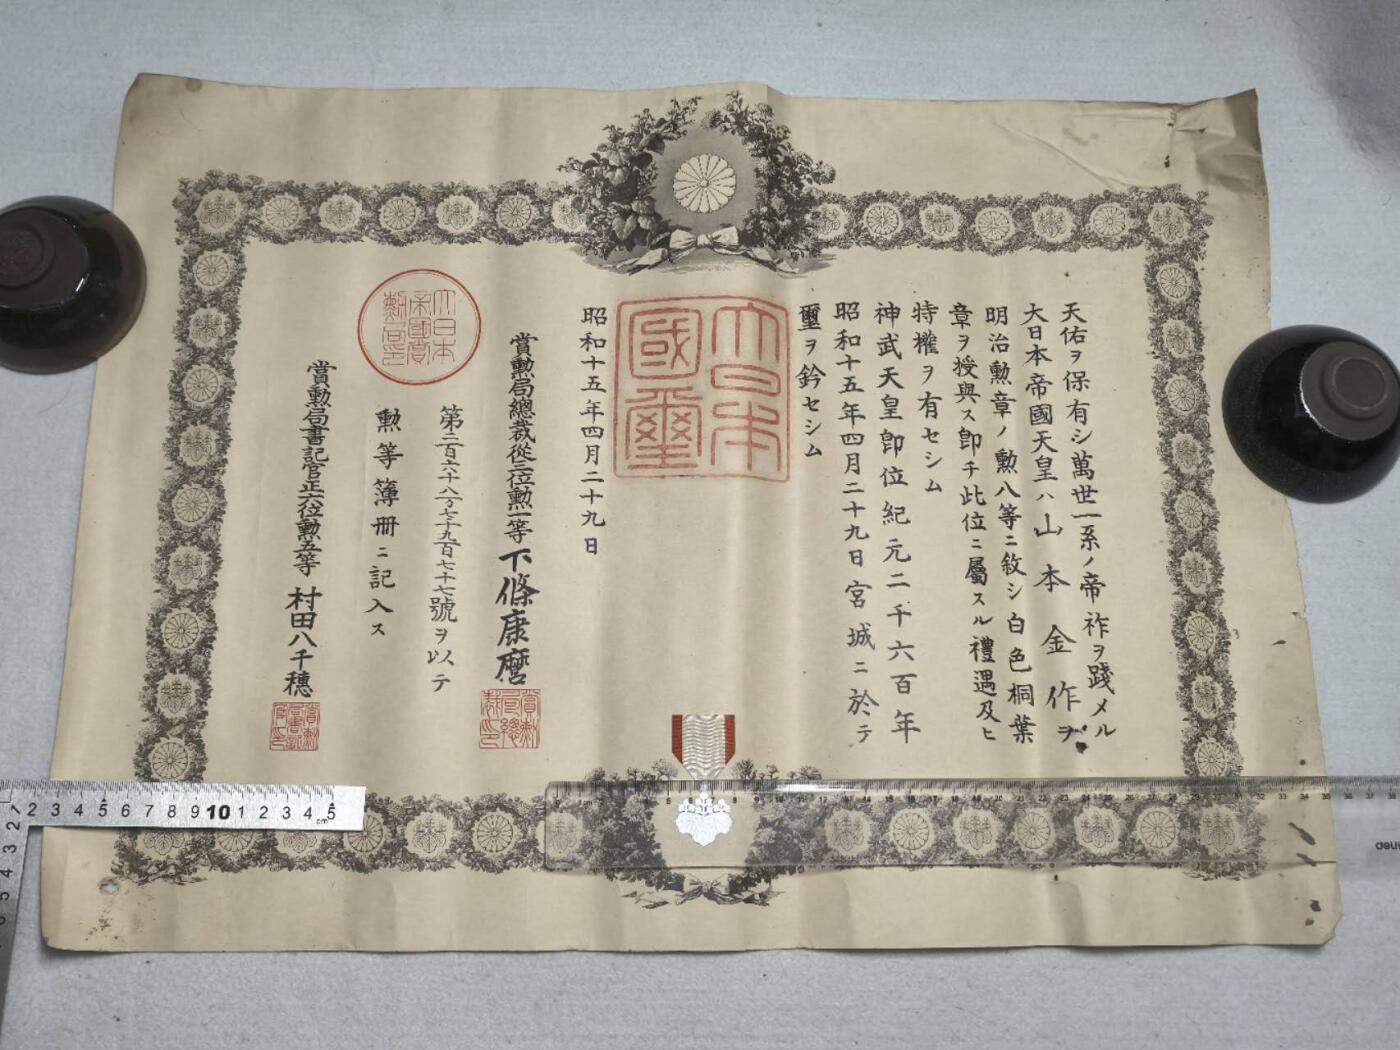 天佑ヲ保有シ萬世一系ノ帝祚ヲ踐メル
大日本帝國天皇ハ山本金作ヲ
明治勲章ノ勲八等ニ敘シ白色桐葉
章ヲ授與ス卽チ此位ニ屬スル禮遇及ヒ
特權ヲ有セシム
神武天皇卽位紀元二千六百年
昭和十五年四月二十九日宮城ニ於テ
璽ヲ鈐セシム
大日本
國璽
昭和十五年四月二十九日
賞勲局總裁從三位勲一等下條康麿
第二百六十八万七千九百七十七號ヲ以テ
勲等簿冊ニ記入ス
賞勲局書記官正六位勲五等村田八千穗
大日本
帝國賞
勲局印
2 3 4 5 6 7 8 9 10 1 2 3 4 5
cm